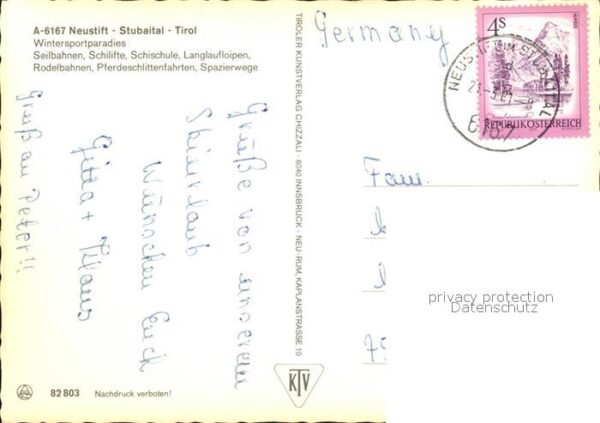 A-6167 Neustift - Stubaital - Tirol
Wintersportparadies
Seilbahnen, Schilifte, Schischule, Langlaufloipen,
Rodelbahnen, Pferdeschlittenfahrten, Spazierwege
Grüße von unserem
Skiurlaub
Wünschen Euch
Gitta + Klaus
Gruß an Peter!!
82 803 Nachdruck verboten!
TIROLER KUNSTVERLAG CHIZZALI · 6040 INNSBRUCK - NEU-RUM, KAPLANSTRASSE 10
KTV
Germany
4S
REPUBLIK ÖSTERREICH
NEUSTIFT IM STUBAITAL
6167
Fam.
privacy protection
Datenschutz